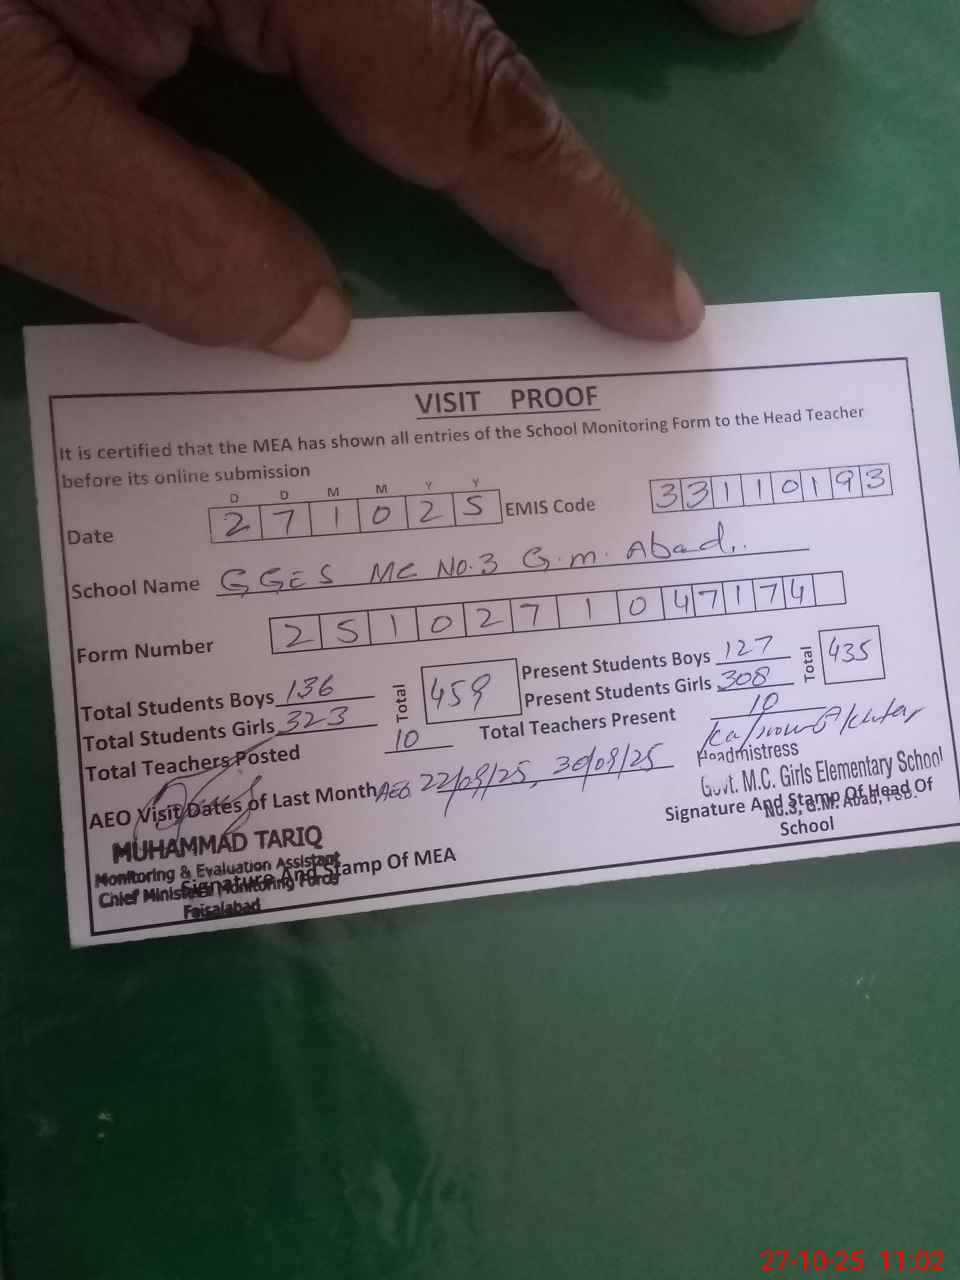 VISIT PROOF
It is certified that the MEA has shown all entries of the School Monitoring Form to the Head Teacher
before its online submission
D D M M Y Y
Date 2 7 1 0 2 5 EMIS Code 3 3 1 1 0 1 9 3
School Name GGES MC No.3 G.m. Abad..
Form Number 2 5 1 0 2 7 1 0 4 7 1 7 4
Total Students Boys 136 Total 459 Present Students Boys 127 Total 435
Total Students Girls 323 Present Students Girls 308
Total Teachers Posted 10 Total Teachers Present 10
AEO Visit Dates of Last Month AEO 22/09/25, 30/09/25
Headmistress
Govt. M.C. Girls Elementary School
No.3, G.M. Abad, FSD.
Signature And Stamp Of Head Of
School
MUHAMMAD TARIQ
Monitoring & Evaluation Assistant
Chief Minister's Monitoring Force
Faisalabad
Signature And Stamp Of MEA
27-10-25 11:02